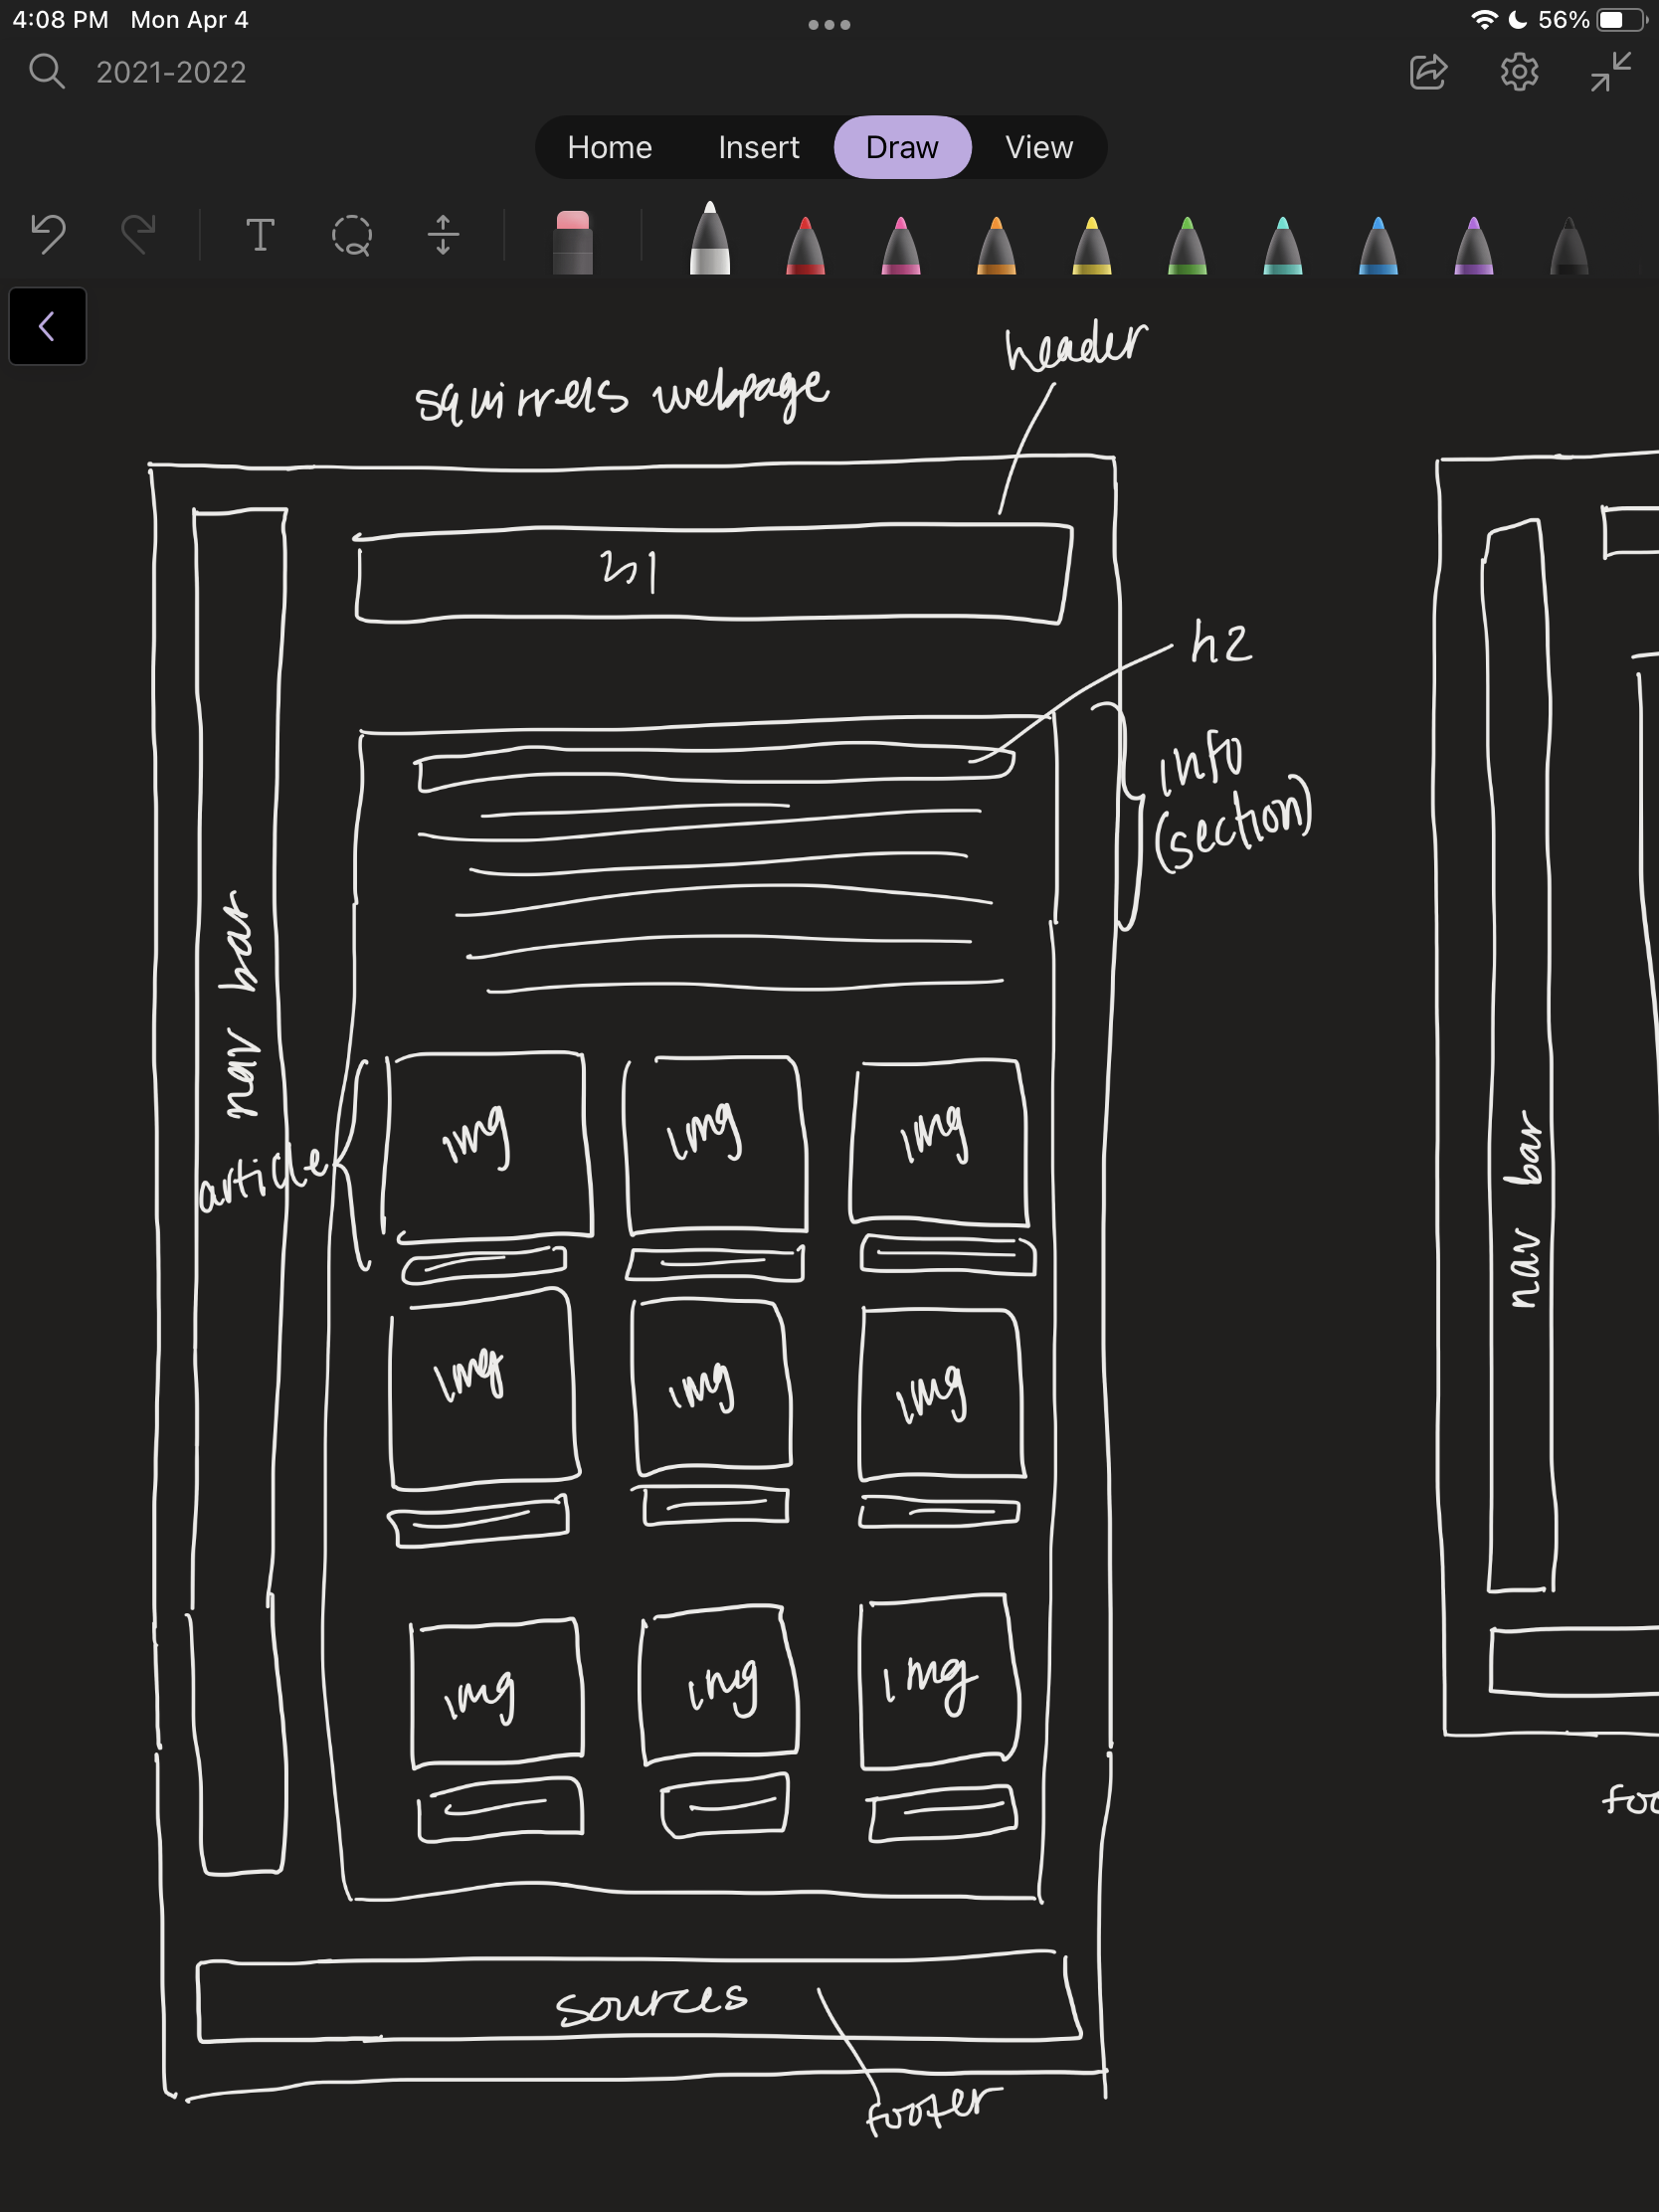 4:08 PM Mon Apr 4
56%
2021-2022
Home Insert Draw View
T
header
squirrels webpage
h1
h2
info
(section)
nav bar
article
img img img
img img img
img img img
sources
footer
nav bar
foo